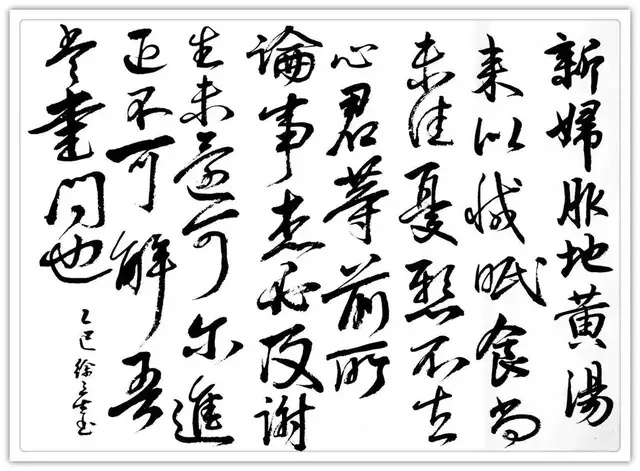 新婦服地黃湯
来以減眠食尚
未佳憂懸不去
心君等前所
論事想必及謝
生未還可尔進
退不可解吾
當書問也
乙巳徐